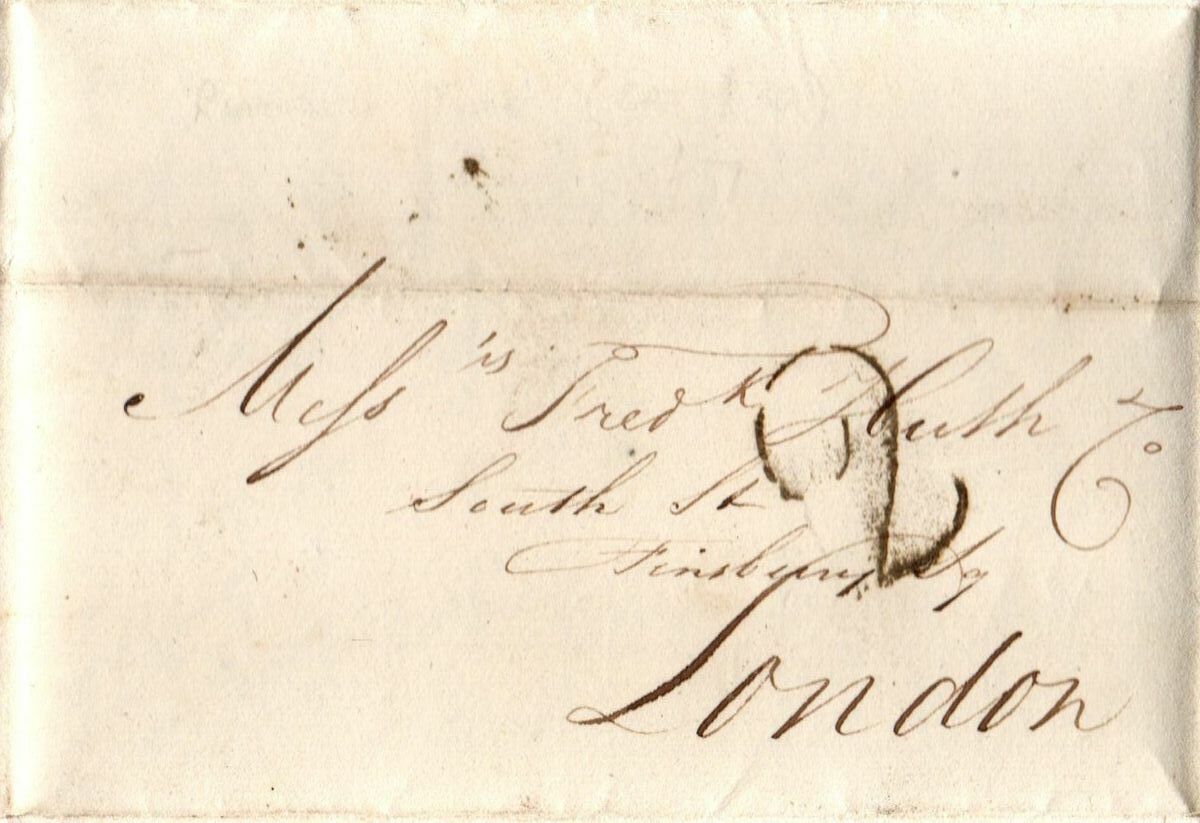 Messrs Fredk Huth & Co
South St
Finsbury Sq
London
2